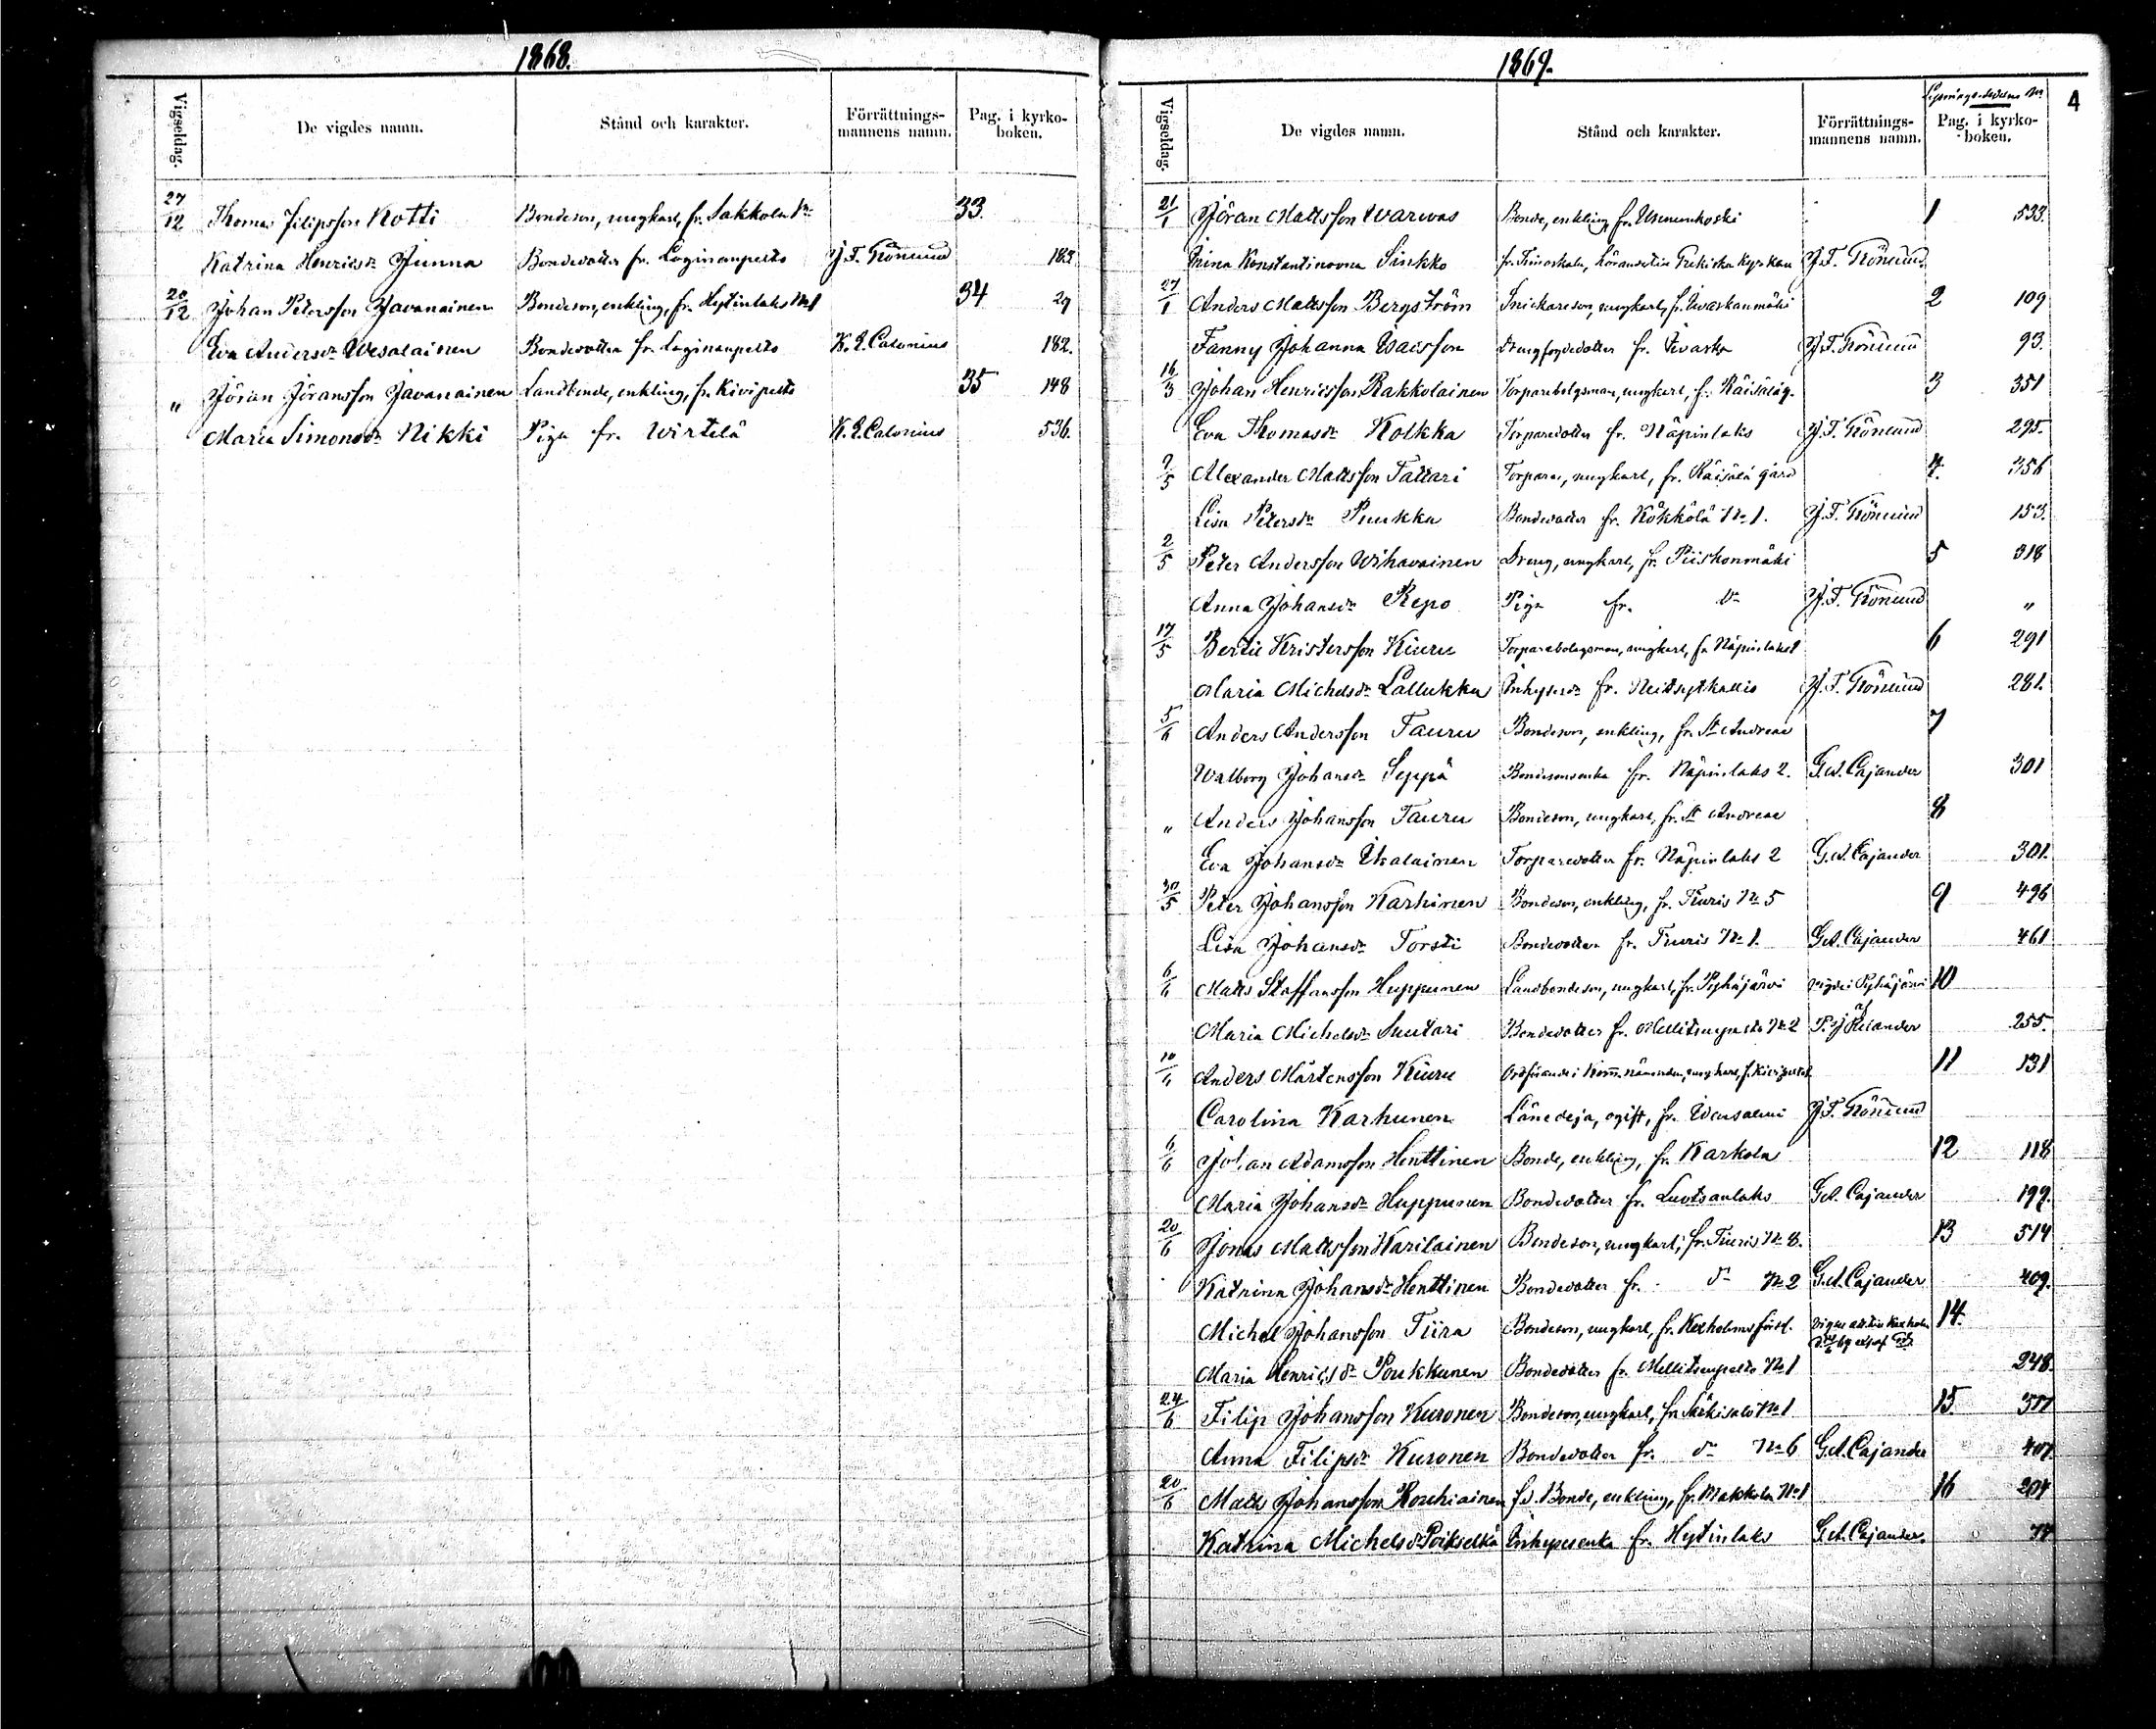 1868.
Vigseldag. De vigdes namn. Stånd och karakter. Förrättnings-mannens namn. Pag. i kyrko-boken.
27/12 Thomas Filipsson Kotti Bondeson, ungkarl, fr. Sakkola 33.
Katrina Henricsdr Junna Bondedotter fr. Loginanpelto J. F. Grönlund 183.
20/12 Johan Petersson Javanainen Bondeson, enkling, fr. Hytinlaks No 1 34 29
Eva Andersdr Wesalainen Bondedotter fr. Loginanpelto K. E. Calonius 182.
" Jöran Jöransson Javanainen Landbonde, enkling, fr. Kivipelto 35 148
Maria Simonsdr Nikki Piga fr. Wirtelä K. E. Calonius 536.
1869.
4
Vigseldag. De vigdes namn. Stånd och karakter. Förrättnings-mannens namn. Pag. i kyrko-boken.
21/1 Jöran Mattsson Warwas Bonde, enkling, fr. Unnunkoski 1 533.
Irina Konstantinovna Sinkko fr. Grekiska kyrkan J. F. Grönlund
27/1 Anders Mattsson Bergström Snickareson, ungkarl, fr. 2 109
Fanny Johanna Isacsson Drengfogdedotter fr. J. F. Grönlund 93.
16/3 Johan Henricsson Rakkolainen Torparebolagsman, ungkarl, fr. Räisälä g. 3 351
Eva Thomasdr Kolkka Torparedotter fr. Näpinlaks J. F. Grönlund 295.
2/5 Alexander Mattsson Tattari Torpare, ungkarl, fr. Räisälä gård 4. 356
Lisa Petersdr Puukka Bondedotter fr. Kökkölä No 1. J. F. Grönlund 153.
2/5 Peter Andersson Wihavainen Dreng, ungkarl, fr. Piiskonmäki 5 318
Anna Johansdr Repo Piga fr. do J. F. Grönlund "
17/5 Bertil Kristersson Kiuru Torparebolagsman, ungkarl, fr. Näpinlaks 6 291
Maria Michelsdr Lallukka Inhysesdr fr. Neitsytkallio J. F. Grönlund 281.
5/6 Anders Andersson Tauru Bondeson, enkling, fr. St Andreae 7
Walborg Johansdr Seppä Bondesonsenka fr. Näpinlaks 2. G. A. Cajander 301
" Anders Johansson Tauru Bondeson, ungkarl, fr. St Andreae 8
Eva Johansdr Ukalainen Torparedotter fr. Näpinlaks 2 G. A. Cajander 301.
30/5 Peter Johansson Karhinen Bondeson, enkling, fr. Tiuris No 5 9 496
Lisa Johansdr Torsti Bondedotter fr. Tiuris No 1. G. A. Cajander 461
6/6 Matts Staffansson Huppunen Landbondeson, ungkarl, fr. Pyhäjärvi vigde i Pyhäjärvi 10
Maria Michelsdr Suutari Bondedotter fr. Mellitsenpelto No 2 af P. J. Relander 255.
10/6 Anders Mårtensson Kiuru Ordförande i Kom. nämnden, ungkarl, fr. Kivipelto 11 131
Carolina Karhunen Länedeja, ogift, fr. Idensalmi J. F. Grönlund
6/6 Johan Adamsson Henttinen Bonde, enkling, fr. Karkola 12 118
Maria Johansdr Huppunen Bondedotter fr. Luotsanlaks G. A. Cajander 199.
20/6 Jonas Mattsson Karilainen Bondeson, ungkarl, fr. Tiuris No 8. 13 514
Katrina Johansdr Henttinen Bondedotter fr. do No 2 G. A. Cajander 409.
Michel Johansson Tiira Bondeson, ungkarl, fr. Kexholms förs. 14.
Maria Henricsdr Poukkunen Bondedotter fr. Mellitsenpelto No 1 248.
24/6 Filip Johansson Kuronen Bondeson, ungkarl, fr. Särkisalo No 1 15.
Anna Filipsdr Kuronen Bondedotter fr. do No 6 G. A. Cajander 407.
20/6 Matts Johansson Roschiainen fd. Bonde, enkling, fr. Makkola No 1 16 204
Katrina Michelsdr Poikselkä Inhysesenka fr. Hytinlaks G. A. Cajander.